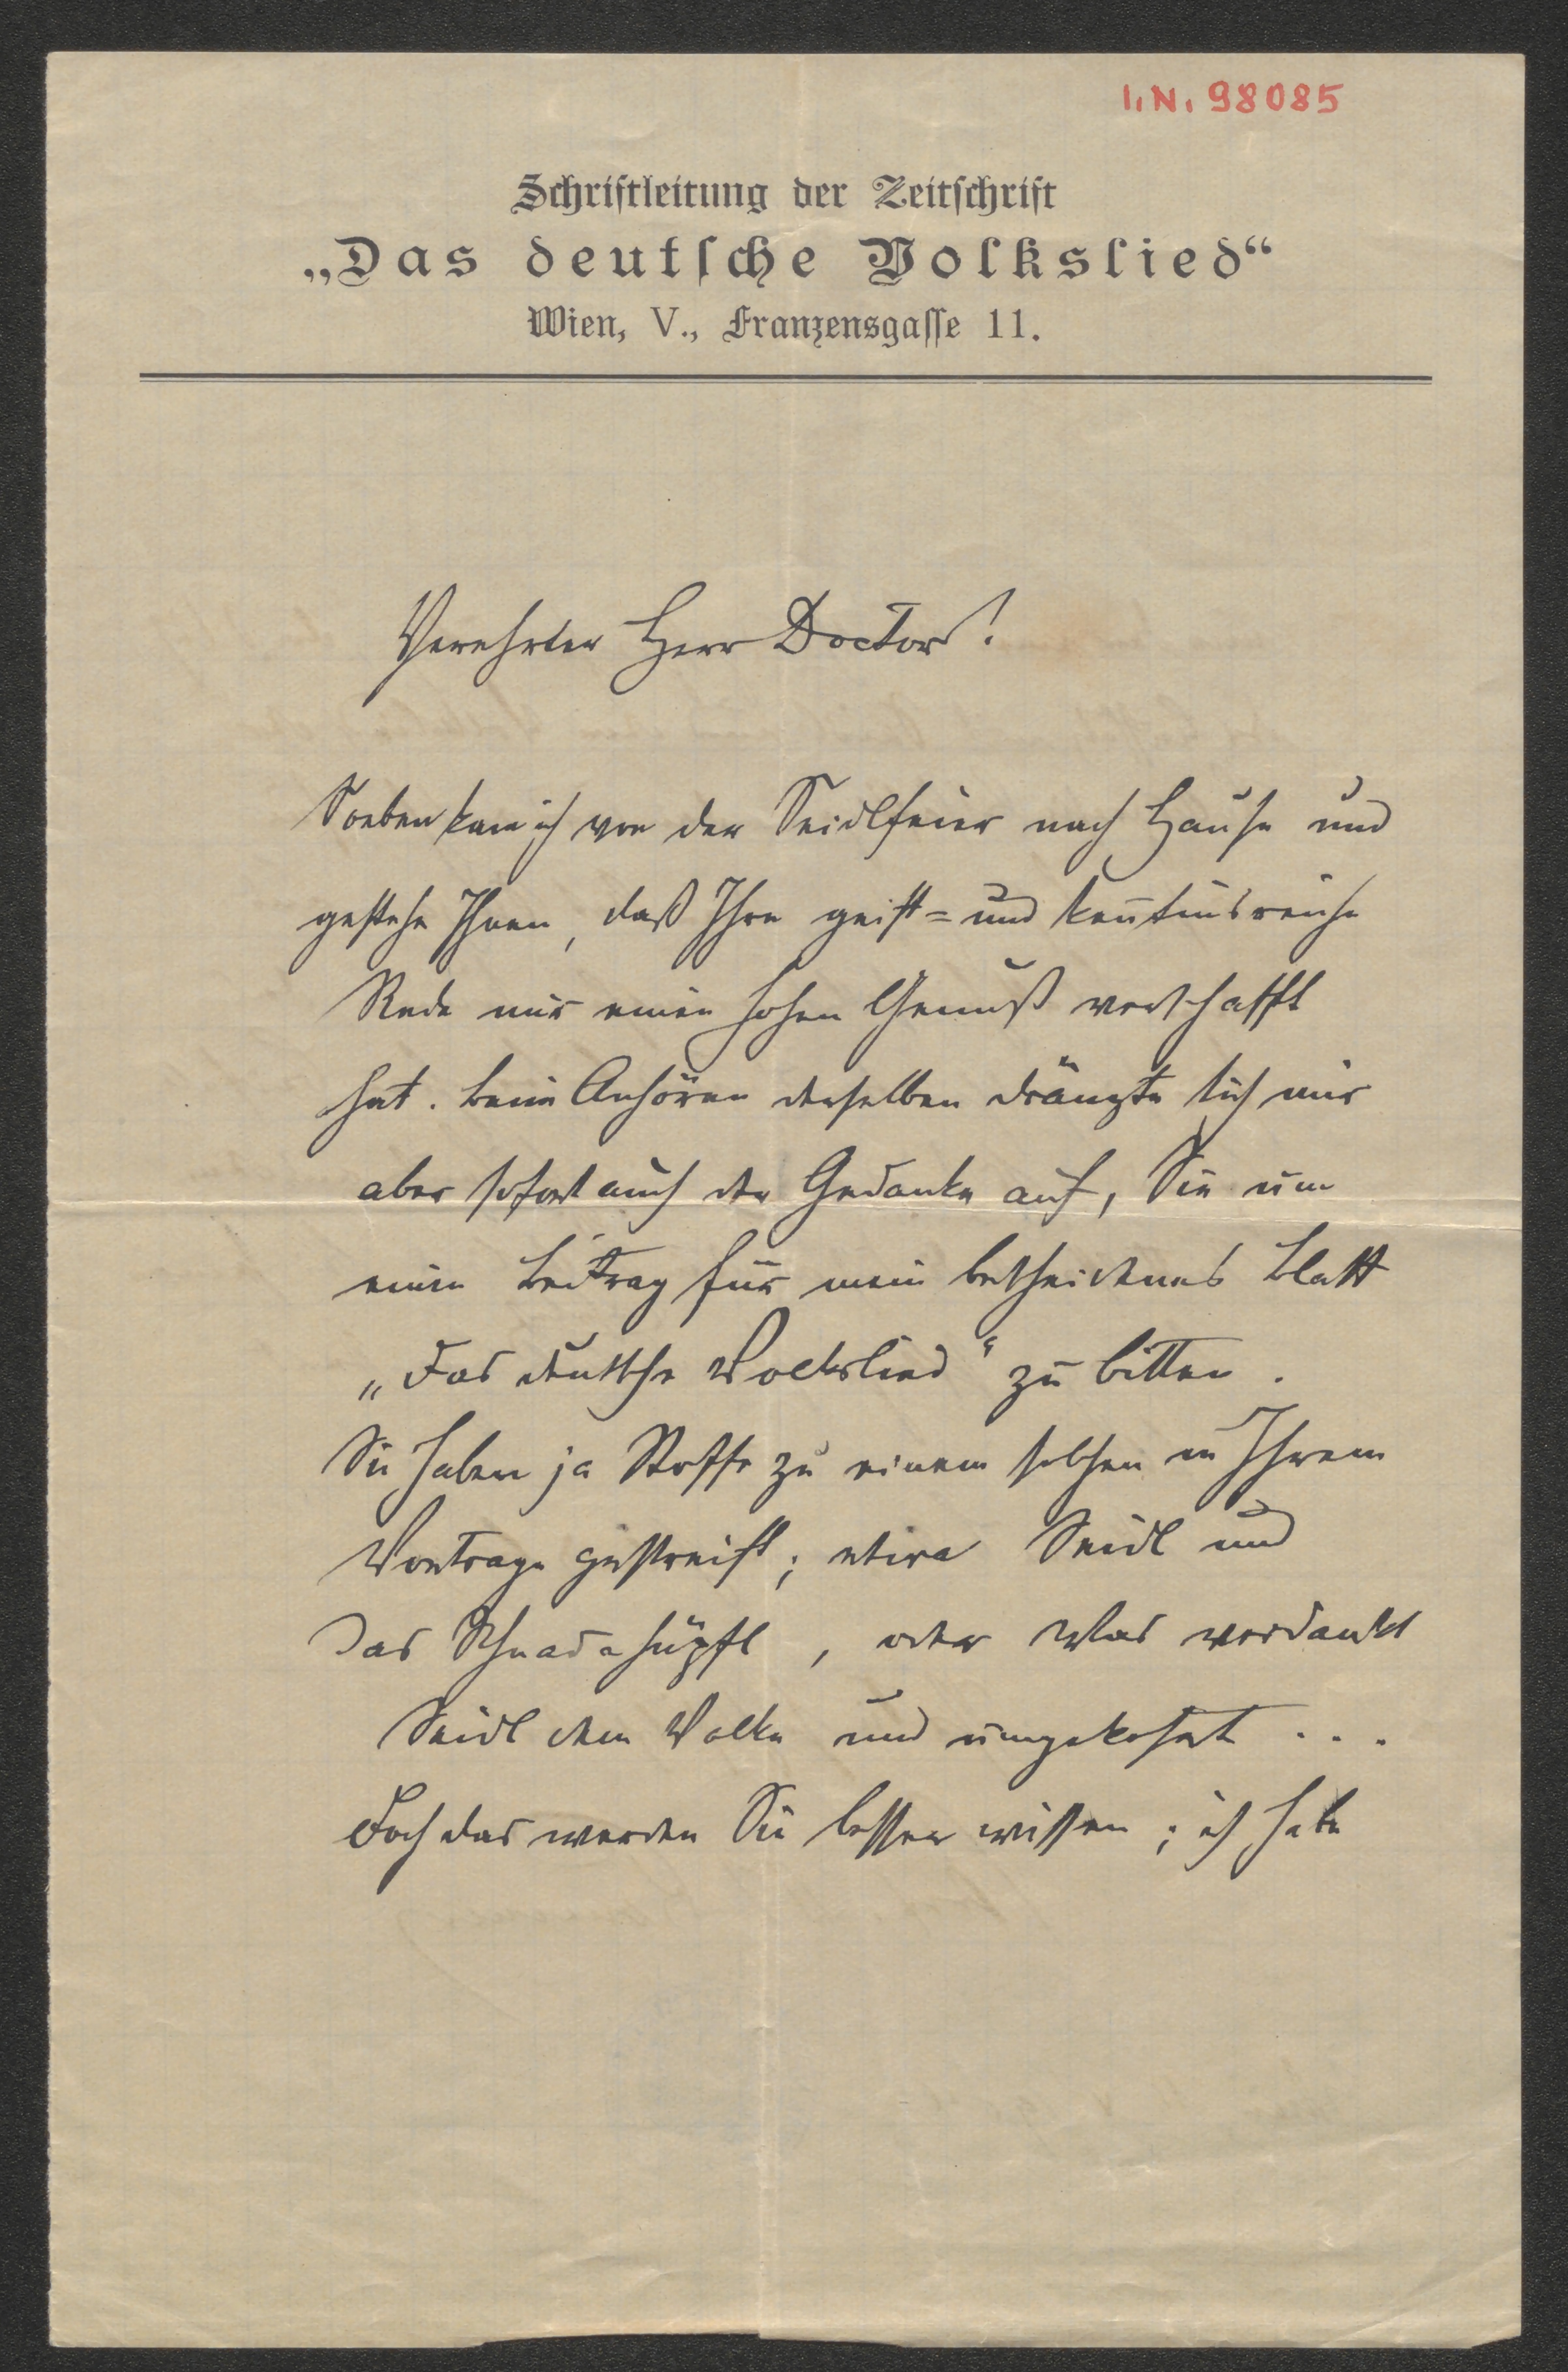 I. N. 98085
Schriftleitung der Zeitschrift
„Das deutsche Volkslied“
Wien, V., Franzensgasse 11.
Verehrter Herr Doctor!
Soeben kam ich von der Seidlfeier nach Hause und
gestehe Ihnen, daß Ihre geist= und kenntnisreiche
Rede mir einen hohen Genuß verschafft
hat. Beim Anhören derselben drängte sich mir
aber sofort auch der Gedanke auf, Sie um
einen Beitrag für mein bescheidenes Blatt
„Das deutsche Volkslied“ zu bitten.
Sie haben ja Stoffe zu einem solchen in Ihrem
Vortrage gestreift; etwa Seidl und
das Schnadahüpfl, oder Was verdankt
Seidl dem Volke und umgekehrt ...
Doch das werden Sie besser wissen; ich habe